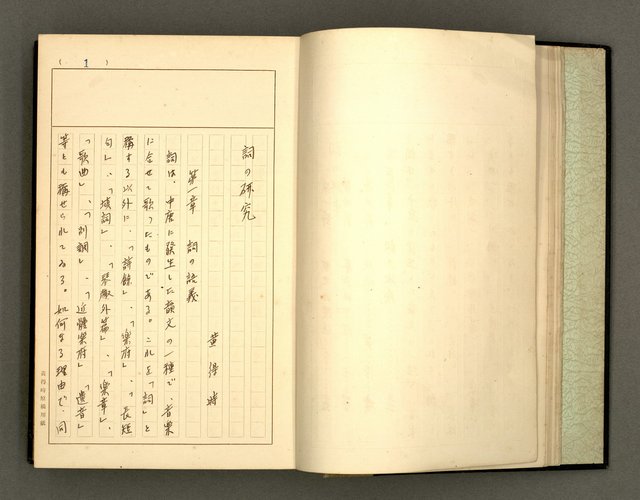 ( 1 )
詞の研究
黄得時
第一章 詞の語義
詞は、中唐に發生した韻文の一種で、音樂
に合せて歌つたものである。これを「詞」と
稱する以外に、「詩餘」、「樂府」、「長短
句」、「填詞」、「琴趣外篇」、「樂章」、
「歌曲」、「別調」、「近體樂府」「遺音」
等とも稱せられてゐる。如何なる理由で、同
黄得時原稿用紙